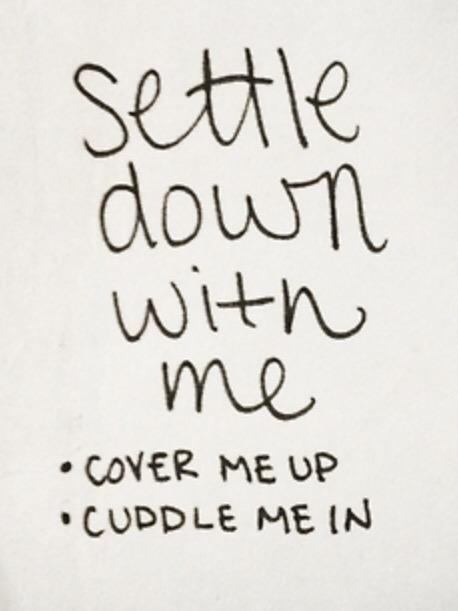 settle
down
with
me
• COVER ME UP
• CUDDLE ME IN